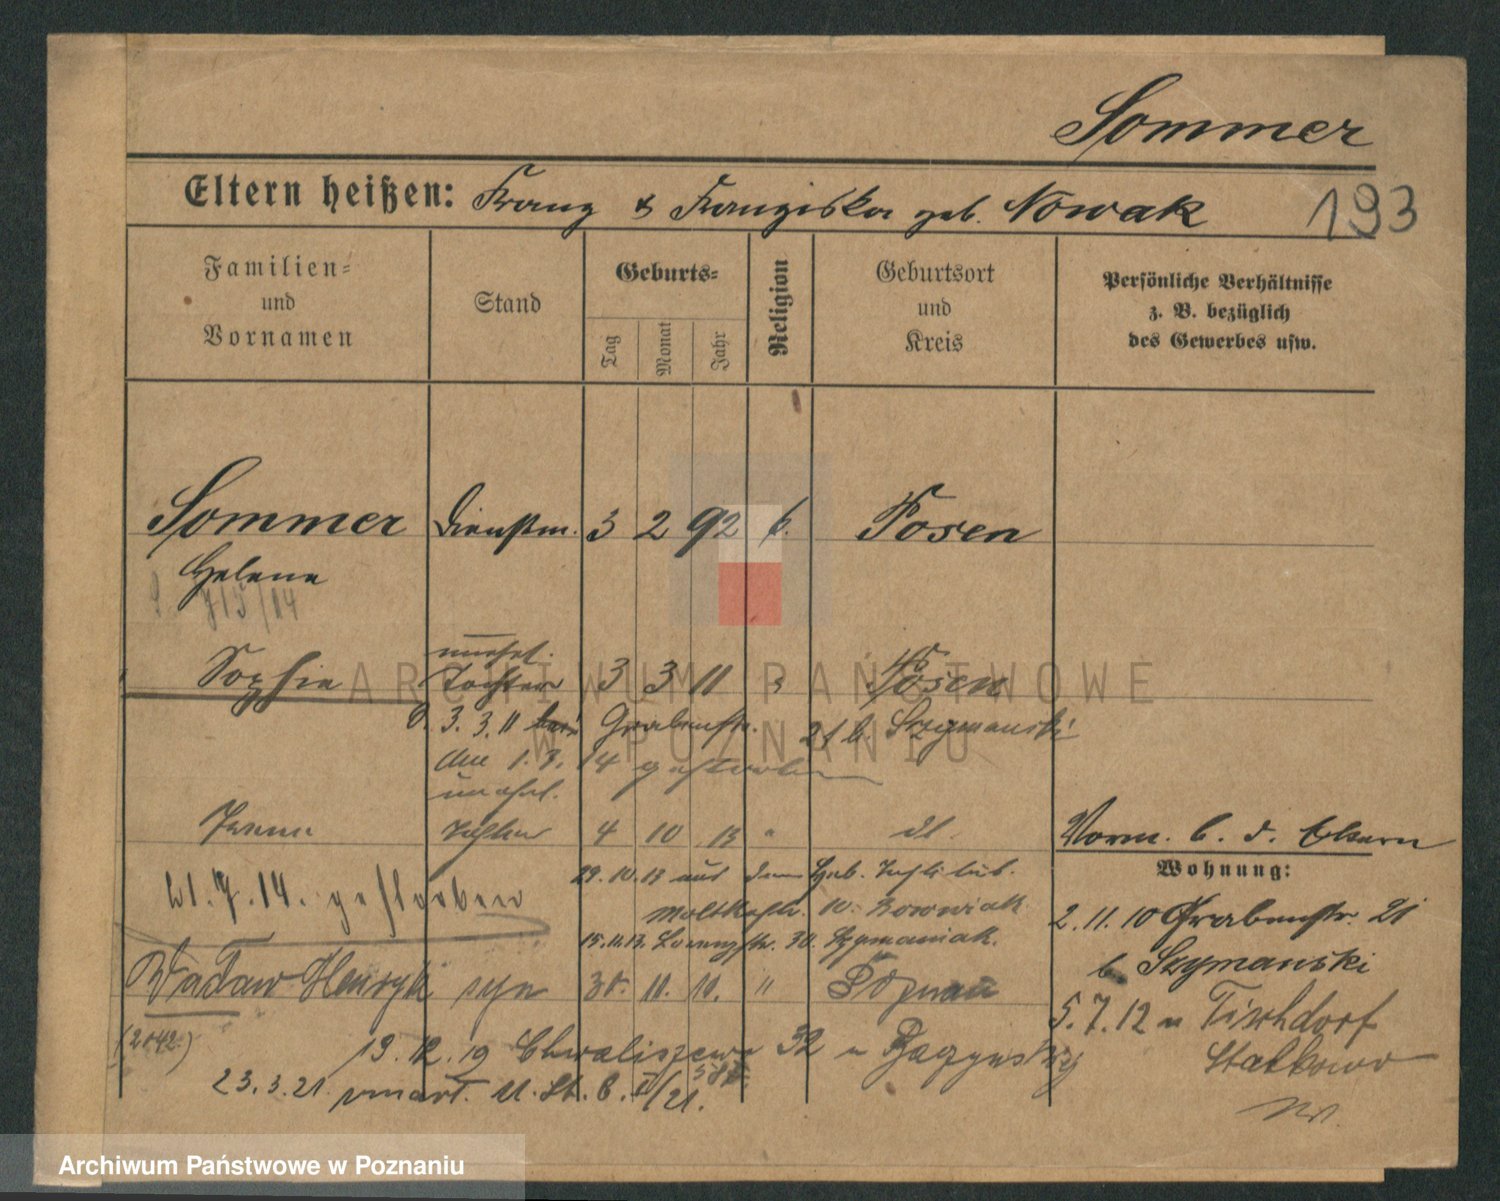 Sommer
Eltern heißen: Franz & Franziska geb. Nowak
193
Familien-
und
Vornamen
Stand
Geburts-
Tag
Monat
Jahr
Religion
Geburtsort
und
Kreis
Persönliche Verhältnisse
z. B. bezüglich
des Gewerbes usw.
Sommer Dienstm. 3 2 92 k. Posen
Helene
715/14
unehel.
Sophie Tochter 3 3 11 " Posen
3. 3. 11 Grabenstr. 21 b. Szymanski
den 1. 3. 14 gestorben
unehel.
Irene Tochter 4 10 13 " dt.
Vorm. b. d. Eltern
Wohnung:
29. 10. 13 aus dem Geb. Institut.
21. 7. 14. gestorben
Moltkestr. 10. Nowwiak
2. 11. 10 Grabenstr. 21
15.11.13. 30. Szymaniak.
b. Szymanski
Wacław Henryk syn 30. 11. 19. " Poznań
5. 7. 12 n Tischdorf
(2042.)
19. 12. 19 Chwaliszewo 32 u
Stalkowo
23. 3. 21. zmarł. U. St. C.
Archiwum Państwowe w Poznaniu
ARCHIWUM PAŃSTWOWE
W POZNANIU